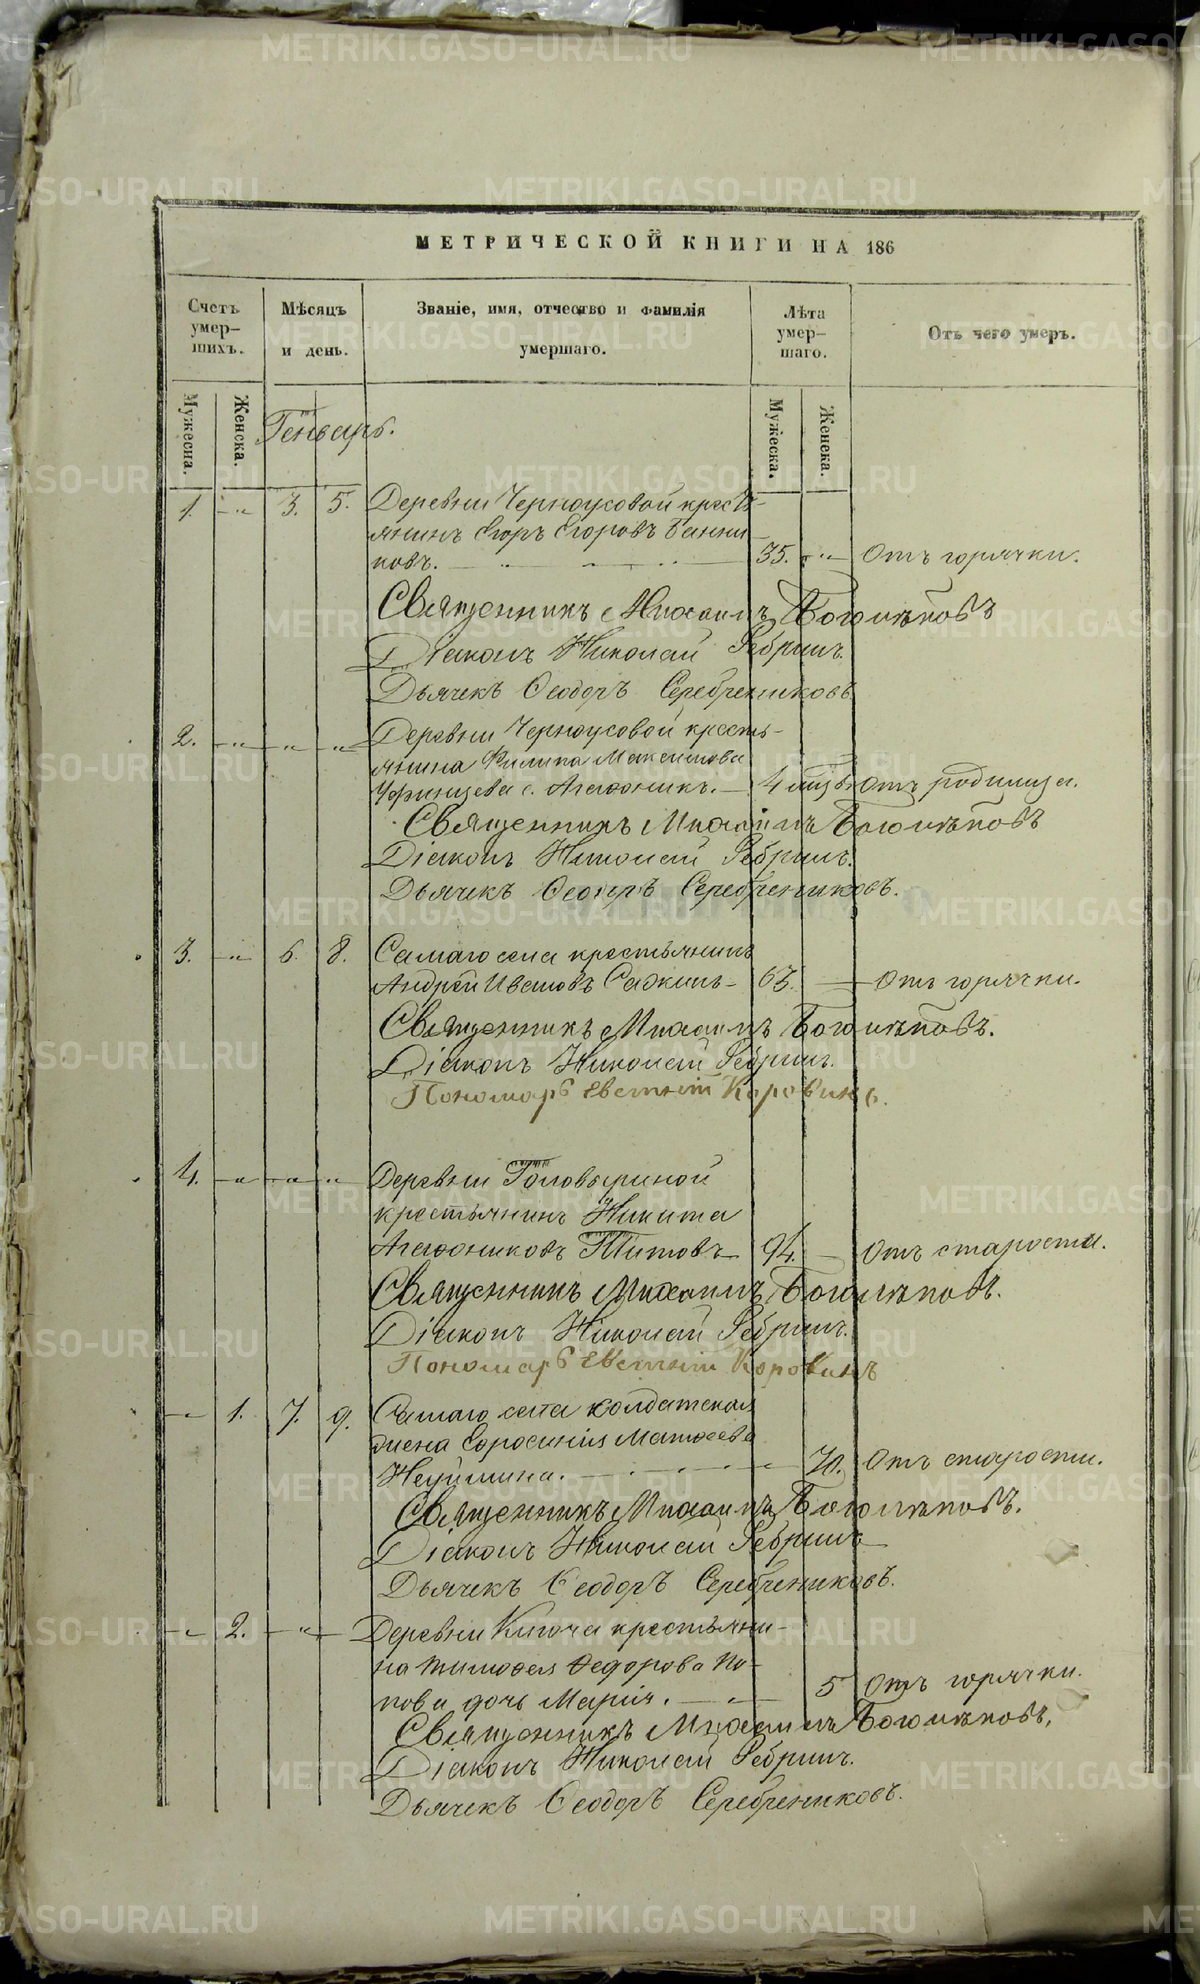 МЕТРИЧЕСКОЙ КНИГИ НА 186
Счетъ умер-шихъ.
Мѣсяцъ и день.
Званіе, имя, отчество и фамилія умершаго.
Лѣта умер-шаго.
Отъ чего умеръ.
Мужеска.
Женска.
Мужеска.
Женска.
Генварь.
1. 3. 5. Деревни Черноусовой кресть-
янинъ Егоръ Егоровъ Банни-
ковъ. 35. Отъ горячки.
Священникъ Михаилъ Боголѣповъ
Діаконъ Николай Ребринъ.
Дьячекъ Ѳеодоръ Серебрениковъ
2. Деревни Черноусовой кресть-
янина Филипа Максимова
с. Агафоникъ. 4 мѣс. Отъ родимца.
Священникъ Михаилъ Боголѣповъ
Діаконъ Николай Ребринъ.
Дьячекъ Ѳеодоръ Серебрениковъ.
3. 6. 8. Самаго села крестьянинъ
Андрей Ивановъ 63. Отъ горячки.
Священникъ Михаилъ Боголѣповъ.
Діаконъ Николай Ребринъ.
Пономарь Евстигій Коровинъ.
4. Деревни Головыриной
крестьянинъ Никита
Агафониковъ Титовъ 94. Отъ старости.
Священникъ Михаилъ Боголѣповъ.
Діаконъ Николай Ребринъ.
Пономарь Евстигій Коровинъ
1. 7. 9. Самаго села солдатская
жена Евросинія Матвеева
Неуймина. 70. Отъ старости.
Священникъ Михаилъ Боголѣповъ.
Діаконъ Николай Ребринъ
Дьячекъ Ѳеодоръ Серебрениковъ.
2. Деревни Ключа крестьяни-
на Тимофея Федорова По-
пова дочь Марія. 5 Отъ горячки.
Священникъ Михаилъ Боголѣповъ.
Діаконъ Николай Ребринъ.
Дьячекъ Ѳеодоръ Серебрениковъ.
METRIKI.GASO-URAL.RU